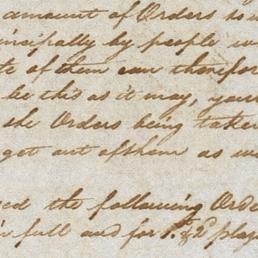 amount of Orders to
incipally by people
te of them can therefor
be this as it may, your
the Orders being taken
got out of them as
ed the following Orde
in full and for 1st & 2d